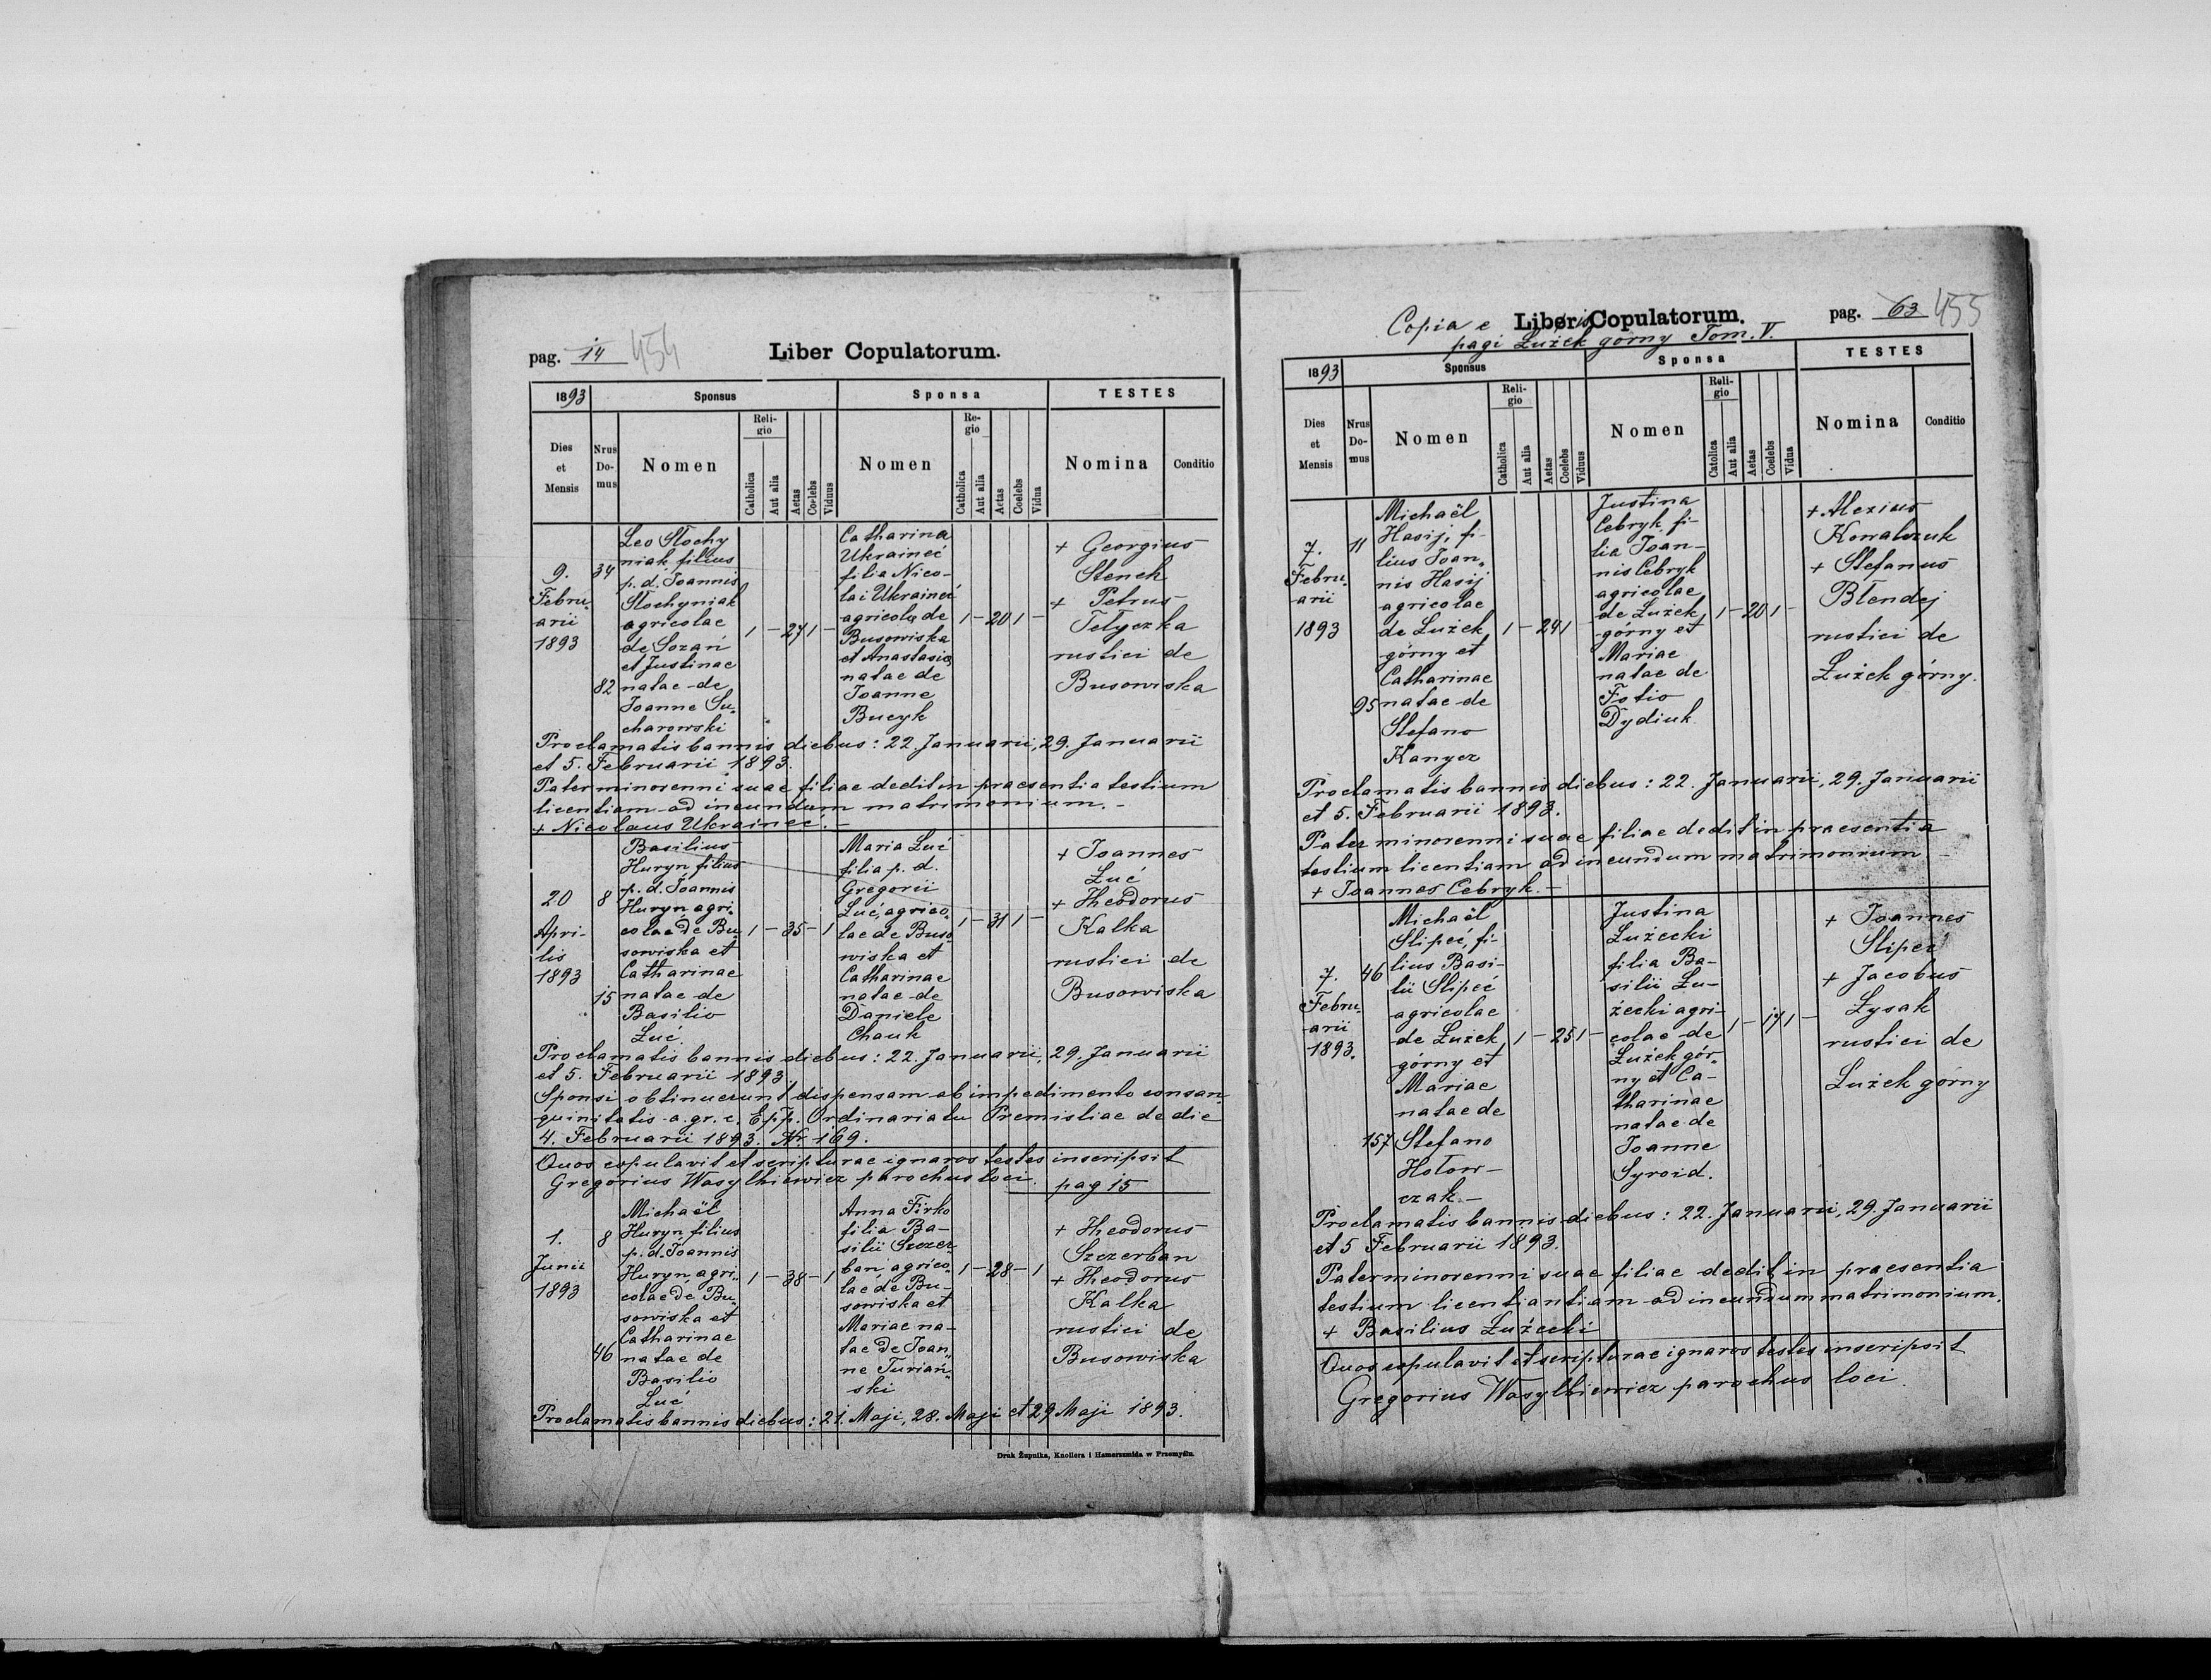 pag. 14 454
Liber Copulatorum.
1893 Sponsus Sponsa TESTES
Dies et Mensis
Nrus Do-mus
Nomen
Reli-gio
Catholica
Aut alia
Aetas
Coelebs
Viduus
Nomen
Re-gio
Catholica
Aut alia
Aetas
Coelebs
Vidua
Nomina
Conditio
9.
Febru-
arii
1893
34
82
Leo Stochy
niak filius
p. d. Joannis
Stochyniak
agricolae
de Sozań
et Justinae
natae de
Joanne Su-
charowski
1 – 27 1 –
Catharina
Ukraineć
filia Nico-
lai Ukraineć
agricolae de
Busowiska
et Anastasia
natae de
Joanne
Bucyk
1 – 20 1 –
+ Georgius
Stench
+ Petrus
Tełyczka
rustici de
Busowiska
Proclamatis bannis diebus: 22. Januarii, 29. Januarii
et 5. Februarii 1893.
Pater minorenni suae filiae dedit in praesentia testium
licentiam ad ineundum matrimonium. –
+ Nicolaus Ukraineć. –
20
Apri-
lis
1893
8
15
Basilius
Huryn filius
p. d. Joannis
Huryn agri-
colae de Bu-
sowiska et
Catharinae
natae de
Basilio
Łuć.
1 – 35 – 1
Maria Łuć
filia p. d.
Gregorii
Łuć, agrico-
lae de Buso-
wiska et
Catharinae
natae de
Daniele
Chauk
1 – 31 1 –
+ Joannes
Łuć
+ Theodorus
Kalka
rustici de
Busowiska
Proclamatis bannis diebus: 22. Januarii, 29. Januarii
et 5. Februarii 1893
Sponsi obtinuerunt dispensam ab impedimento consan-
quinitatis a. gr. c. Epp. Ordinariatu Premisliae de die
4. Februarii 1893. Nr 169.
Quos copulavit et scripturae ignaros testes inscripsit
Gregorius Wasylkiewicz parochus loci.
pag 15
1.
Junii
1893
8
46
Michaël
Huryn filius
p. d. Joannis
Huryn, agri-
colae de Bu-
sowiska et
Catharinae
natae de
Basilio
Łuć
1 – 38 – 1
Anna Firko
filia Ba-
silii Szczer-
ban agrico-
lae de Bu-
sowiska et
Mariae na-
tae de Joan-
ne Turiań-
ski
1 – 28 – 1
+ Theodorus
Szczerban
+ Theodorus
Kalka
rustici de
Busowiska
Proclamatis bannis diebus: 21. Maji, 28. Maji et 29 Maji 1893.
Druk Żupnika, Knollera i Hamerszmida w Przemyślu.
Copia e Libris Copulatorum. pag. 63 455
pagi Łużek górny Tom. V.
1893 Sponsus Sponsa TESTES
Dies et Mensis
Nrus Do-mus
Nomen
Reli-gio
Catholica
Aut alia
Aetas
Coelebs
Viduus
Nomen
Reli-gio
Catolica
Aut alia
Aetas
Coelebs
Vidua
Nomina
Conditio
7.
Febru-
arii
1893
11
95
Michaël
Hasij, fi-
lius Joan-
nis Hasij
agricolae
de Łużek
górny et
Catharinae
natae de
Stefano
Kanycz
1 – 24 1 –
Justina
Cebryk fi-
lia Joan-
nis Cebryk
agricolae
de Łużek
górny et
Mariae
natae de
Fotio
Dydiuk.
1 – 20 1 –
+ Alexius
Kowalczuk
+ Stefanus
Błendej
rustici de
Łużek górny.
Proclamatis bannis diebus: 22. Januarii, 29. Januarii
et 5. Februarii 1893.
Pater minorenni suae filiae dedit in praesentia
testium licentiam ad ineundum matrimonium –
+ Joannes Cebryk. –
7.
Febru-
arii
1893.
46
157
Michaël
Slipeć, fi-
lius Basi-
lii Slipec
agricolae
de Łużek
górny et
Mariae
natae de
Stefano
Hołow-
czak –
1 – 25 1 –
Justina
Łużecki
filia Ba-
silii Łu-
żecki agri-
colae de
Łużek gór-
ny et Ca-
tharinae
natae de
Joanne
Syroid.
1 – 17 1 –
+ Joannes
Slipeć
+ Jacobus
Łysak
rustici de
Łużek górny
Proclamatis bannis diebus: 22. Januarii, 29. Januarii
et 5 Februarii 1893.
Pater minorenni suae filiae dedit in praesentia
testium licentiantiam ad ineundum matrimonium.
+ Basilius Łużecki
Quos copulavit et scripturae ignaros testes inscripsit
Gregorius Wasylkiewicz parochus loci.